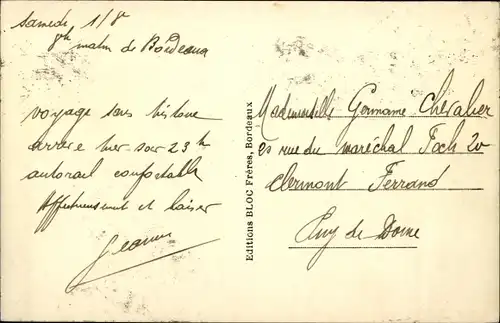 Samedi 1/8
8h matin de Bordeaux
voyage sans histoire
arrivée hier soir 23h
autorail confortable
Affectueusement et baiser
Jeanne
Editions BLOC Frères, Bordeaux
Mademoiselle Germaine Chevalier
rue du maréchal Foch 20
Clermont Ferrand
Puy de Dome